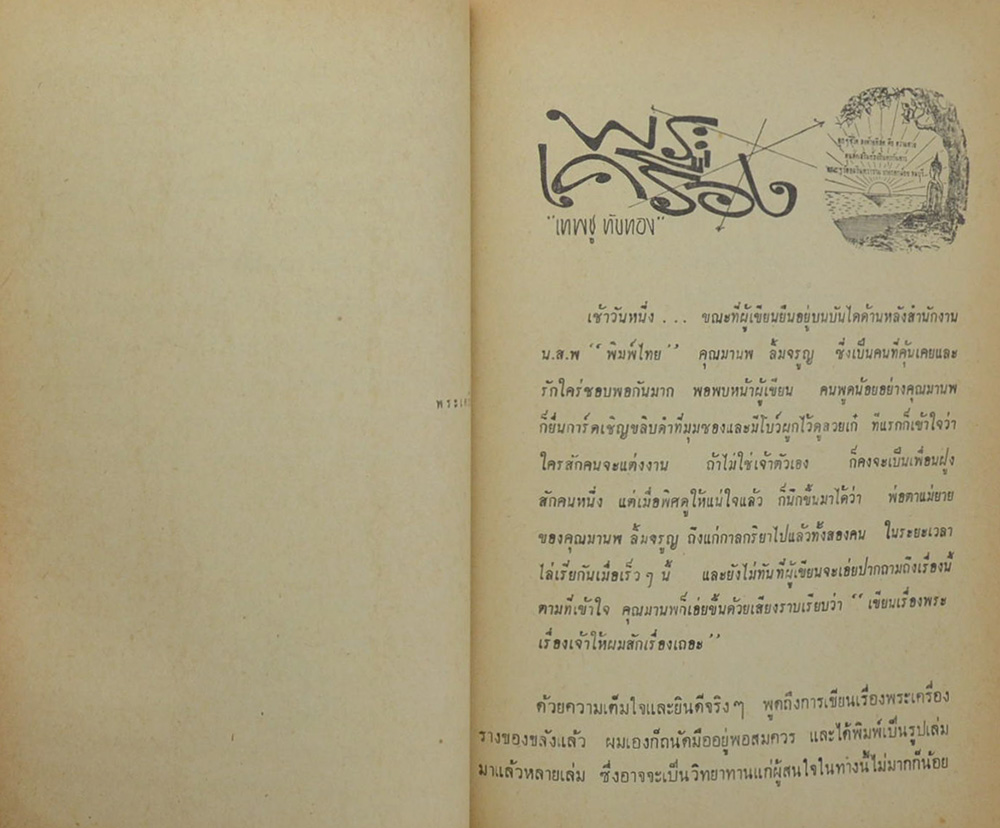 พระเค
พระ
เครื่อง
"เทพชู ทับทอง"
เช้าวันหนึ่ง ... ขณะที่ผู้เขียนยืนอยู่บนบันไดด้านหลังสำนักงาน
น.ส.พ "พิมพ์ไทย" คุณมานพ ลิ้มจรูญ ซึ่งเป็นคนที่คุ้นเคยและ
รักใคร่ชอบพอกันมาก พอพบหน้าผู้เขียน คนพูดน้อยอย่างคุณมานพ
ก็ยื่นการ์ดเชิญขลิบดำที่มุมซองและมีโบว์ผูกไว้ดูสวยเก๋ ทีแรกก็เข้าใจว่า
ใครสักคนจะแต่งงาน ถ้าไม่ใช่เจ้าตัวเอง ก็คงจะเป็นเพื่อนฝูง
สักคนหนึ่ง แต่เมื่อพิศดูให้แน่ใจแล้ว ก็นึกขึ้นมาได้ว่า พ่อตาแม่ยาย
ของคุณมานพ ลิ้มจรูญ ถึงแก่กาลกริยาไปแล้วทั้งสองคน ในระยะเวลา
ไล่เรี่ยกันเมื่อเร็วๆ นี้ และยังไม่ทันที่ผู้เขียนจะเอ่ยปากถามถึงเรื่องนี้
ตามที่เข้าใจ คุณมานพก็เอ่ยขึ้นด้วยเสียงราบเรียบว่า "เขียนเรื่องพระ
เรื่องเจ้าให้ผมสักเรื่องเถอะ"
ด้วยความเต็มใจและยินดีจริงๆ พูดถึงการเขียนเรื่องพระเครื่อง
รางของขลังแล้ว ผมเองก็ถนัดมืออยู่พอสมควร และได้พิมพ์เป็นรูปเล่ม
มาแล้วหลายเล่ม ซึ่งอาจจะเป็นวิทยาทานแก่ผู้สนใจในทางนี้ไม่มากก็น้อย